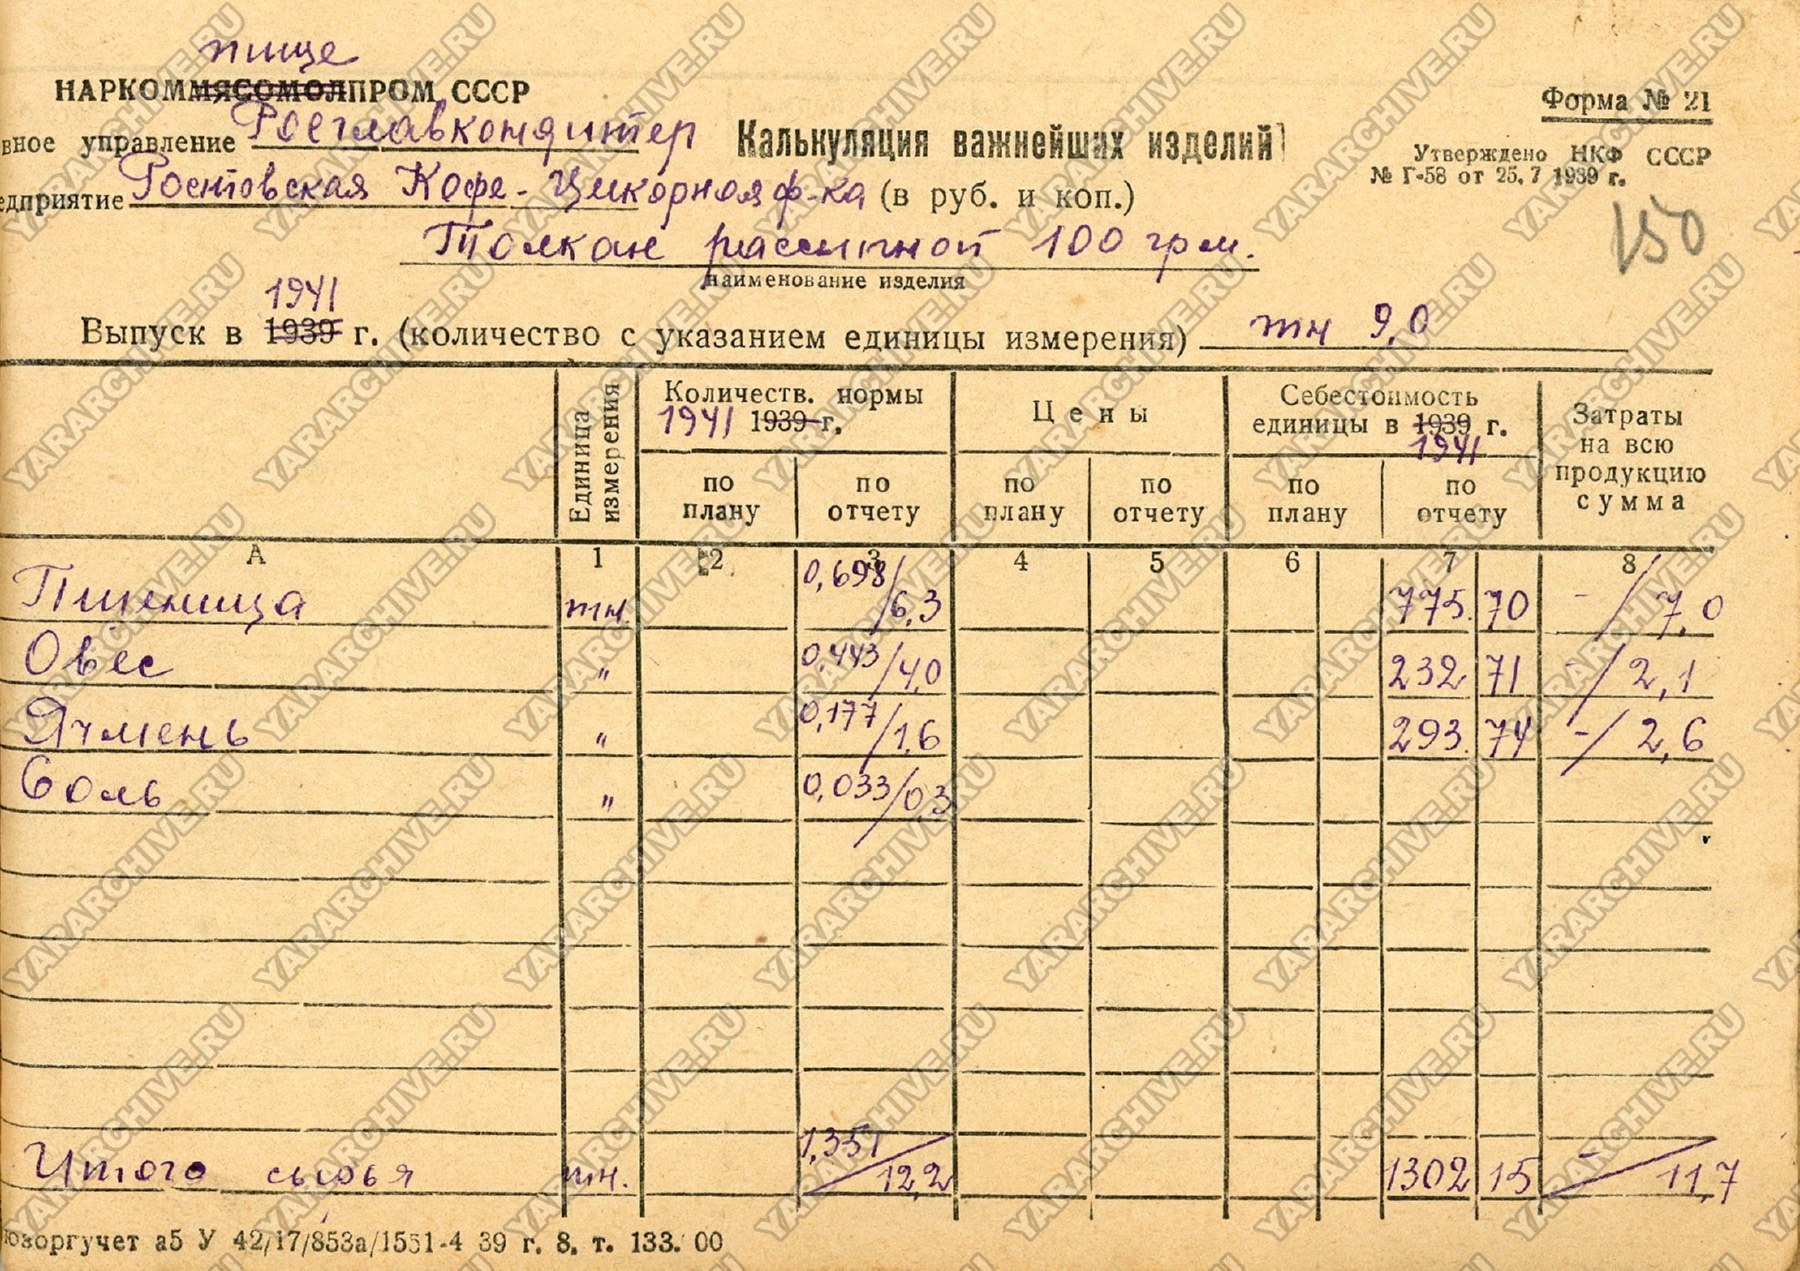 пище
НАРКОММЯСОМОЛПРОМ СССР
Форма № 21
вное управление Росглавкондитер
Калькуляция важнейших изделий
Утверждено НКФ СССР
№ Г-58 от 25.7 1939 г.
едприятие Ростовская Кофе-Цикорная ф-ка (в руб. и коп.)
150
Толкан рассыпной 100 грм.
наименование изделия
1941
Выпуск в 1939 г. (количество с указанием единицы измерения) тн 9,0
Единица измерения
Количеств. нормы
1941 1939 г.
Цены
Себестоимость
единицы в 1939 г.
1941
Затраты
на всю
продукцию
сумма
по плану
по отчету
по плану
по отчету
по плану
по отчету
А 1 2 3 4 5 6 7 8
Пшеница тн. 0,698/6,3 775.70 -/7,0
Овес " 0,443/4,0 232 71 -/2,1
Ячмень " 0,177/1,6 293.74 -/2,6
Соль " 0,033/0,3
Итого сырья тн. 1,351/12,2 1302 15 -/11,7
юзоргучет аб У 42/17/853а/1551-4 39 г. 8. т. 133. 00
YARARCHIVE.RU